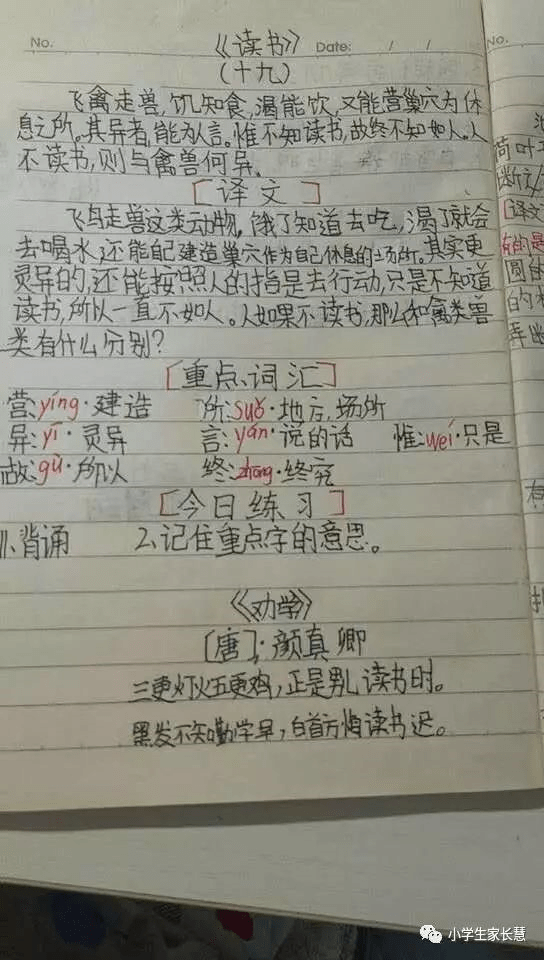 No. 《读书》 Date: / /
(十九)
飞禽走兽,饥知食,渴能饮,又能营巢穴为休
息之所。其异者,能为人言。惟不知读书,故终不如人。人
不读书,则与禽兽何异。
[译文]
飞鸟走兽这类动物,饿了知道去吃,渴了就会
去喝水还能自己建造巢穴作为自己休息的场所。其实更
灵异的,还能按照人的指是去行动,只是不知道
读书,所以一直不如人。人如果不读书,那么和禽类兽
类有什么分别?
[重点词汇]
营:yíng·建造 所:suǒ·地方,场所
异:yì·灵异 言:yán·说的话 惟:weí·只是
故:gù·所以 终:zhōng·终究
[今日练习]
1、背诵 2、记住重点字的意思。
《劝学》
[唐]·颜真卿
三更灯火五更鸡,正是男儿读书时。
黑发不知勤学早,白首方悔读书迟。
No.
荷叶
[译文
有的是
圆
的
小学生家长慧